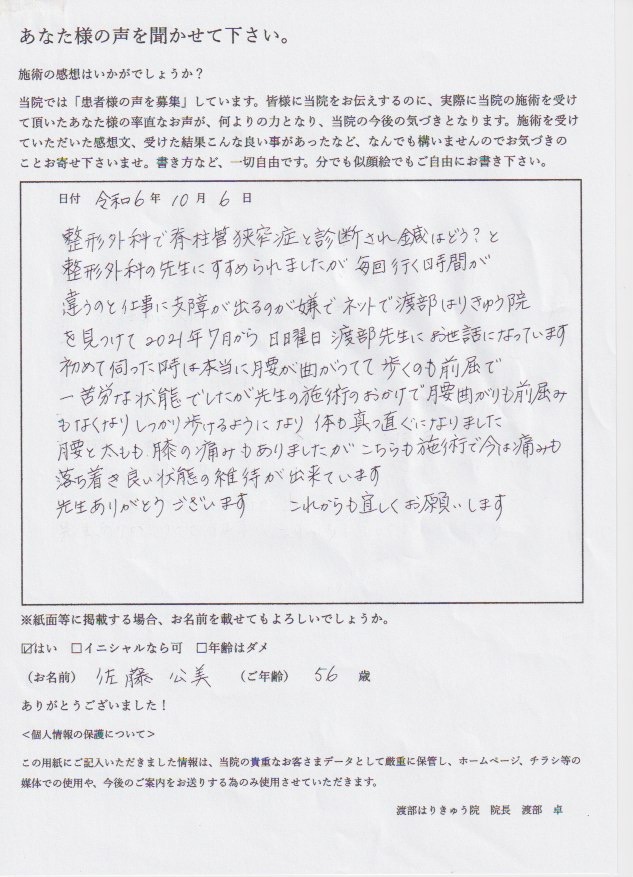 あなた様の声を聞かせて下さい。
施術の感想はいかがでしょうか？
当院では「患者様の声を募集」しています。皆様に当院をお伝えするのに、実際に当院の施術を受け
て頂いたあなた様の率直なお声が、何よりの力となり、当院の今後の気づきとなります。施術を受け
ていただいた感想文、受けた結果こんな良い事があったなど、なんでも構いませんのでお気づきの
ことお寄せ下さいませ。書き方など、一切自由です。分でも似顔絵でもご自由にお書き下さい。
日付 令和6年 10月 6日
整形外科で脊柱管狭窄症と診断され鍼はどう？と
整形外科の先生にすすめられましたが 毎回行く時間が
違うのと仕事に支障が出るのが嫌で ネットで渡部はりきゅう院
を見つけて 2021年7月から 日曜日 渡部先生に お世話になっています
初めて伺った時は本当に腰が曲がってて 歩くのも前屈で
一苦労な状態でしたが先生の施術のおかげで腰曲がりも前屈み
もなくなり しっかり歩けるようになり 体も真っ直ぐになりました
腰と太もも 膝の痛みもありましたが こちらも施術で今は痛みも
落ち着き良い状態の維持が出来ています
先生ありがとうございます これからも宜しくお願いします
※紙面等に掲載する場合、お名前を載せてもよろしいでしょうか。
☑はい □イニシャルなら可 □年齢はダメ
（お名前） 佐藤 公美 （ご年齢） 56 歳
ありがとうございました！
<個人情報の保護について>
この用紙にご記入いただきました情報は、当院の貴重なお客さまデータとして厳重に保管し、ホームページ、チラシ等の
媒体での使用や、今後のご案内をお送りする為のみ使用させていただきます。
渡部はりきゅう院 院長 渡部 卓